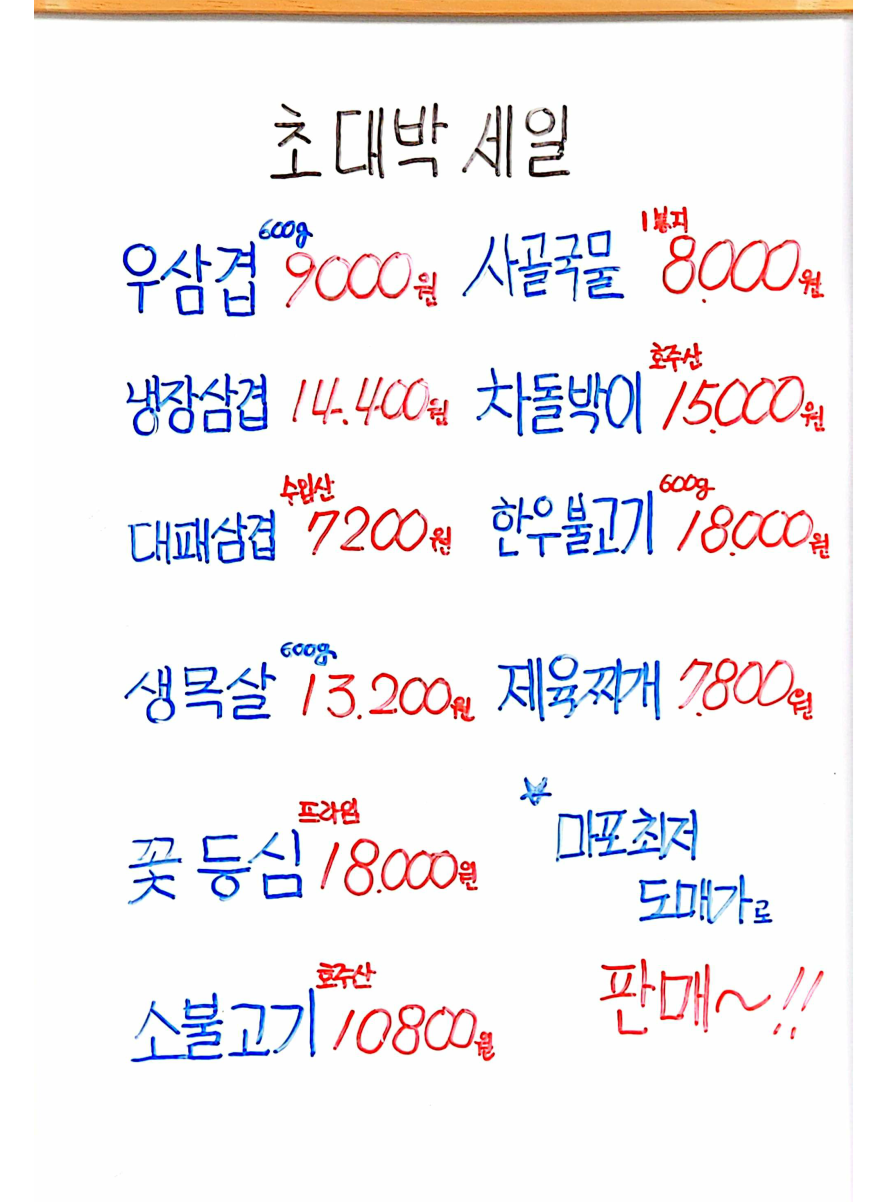 초대박 세일
우삼겹 600g 9000원
사골국물 1봉지 8.000원
냉장삼겹 14.400원
차돌박이 호주산 15.000원
대패삼겹 수입산 7200원
한우불고기 600g 18.000원
생목살 600g 13.200원
제육찌개 7.800원
꽃등심 프라임 18.000원
소불고기 호주산 10800원
마포최저
도매가로
판매~!!